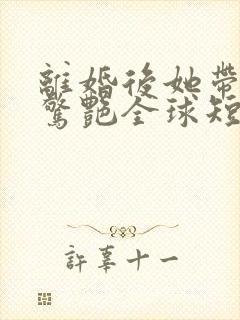 離婚後她帶
驚艷全球短
許辜十一